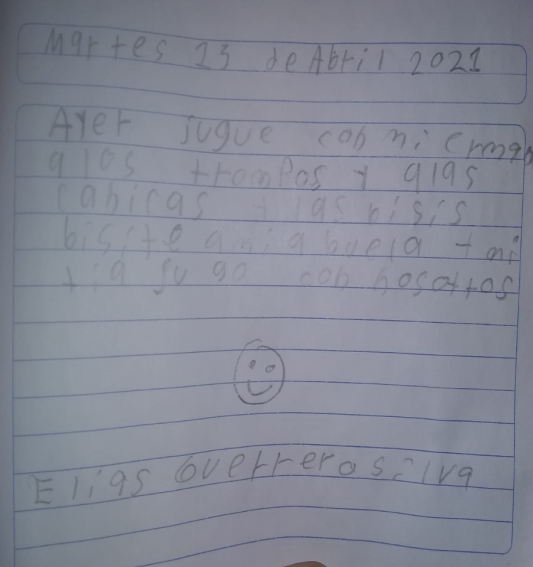 Martes 13 de Abril 2021
Ayer jugue con mi erman
a los trompos y a las
canicas y las
bisite a mi abuela y mi
tia jugo con nosotros
Elias Guerrero silva